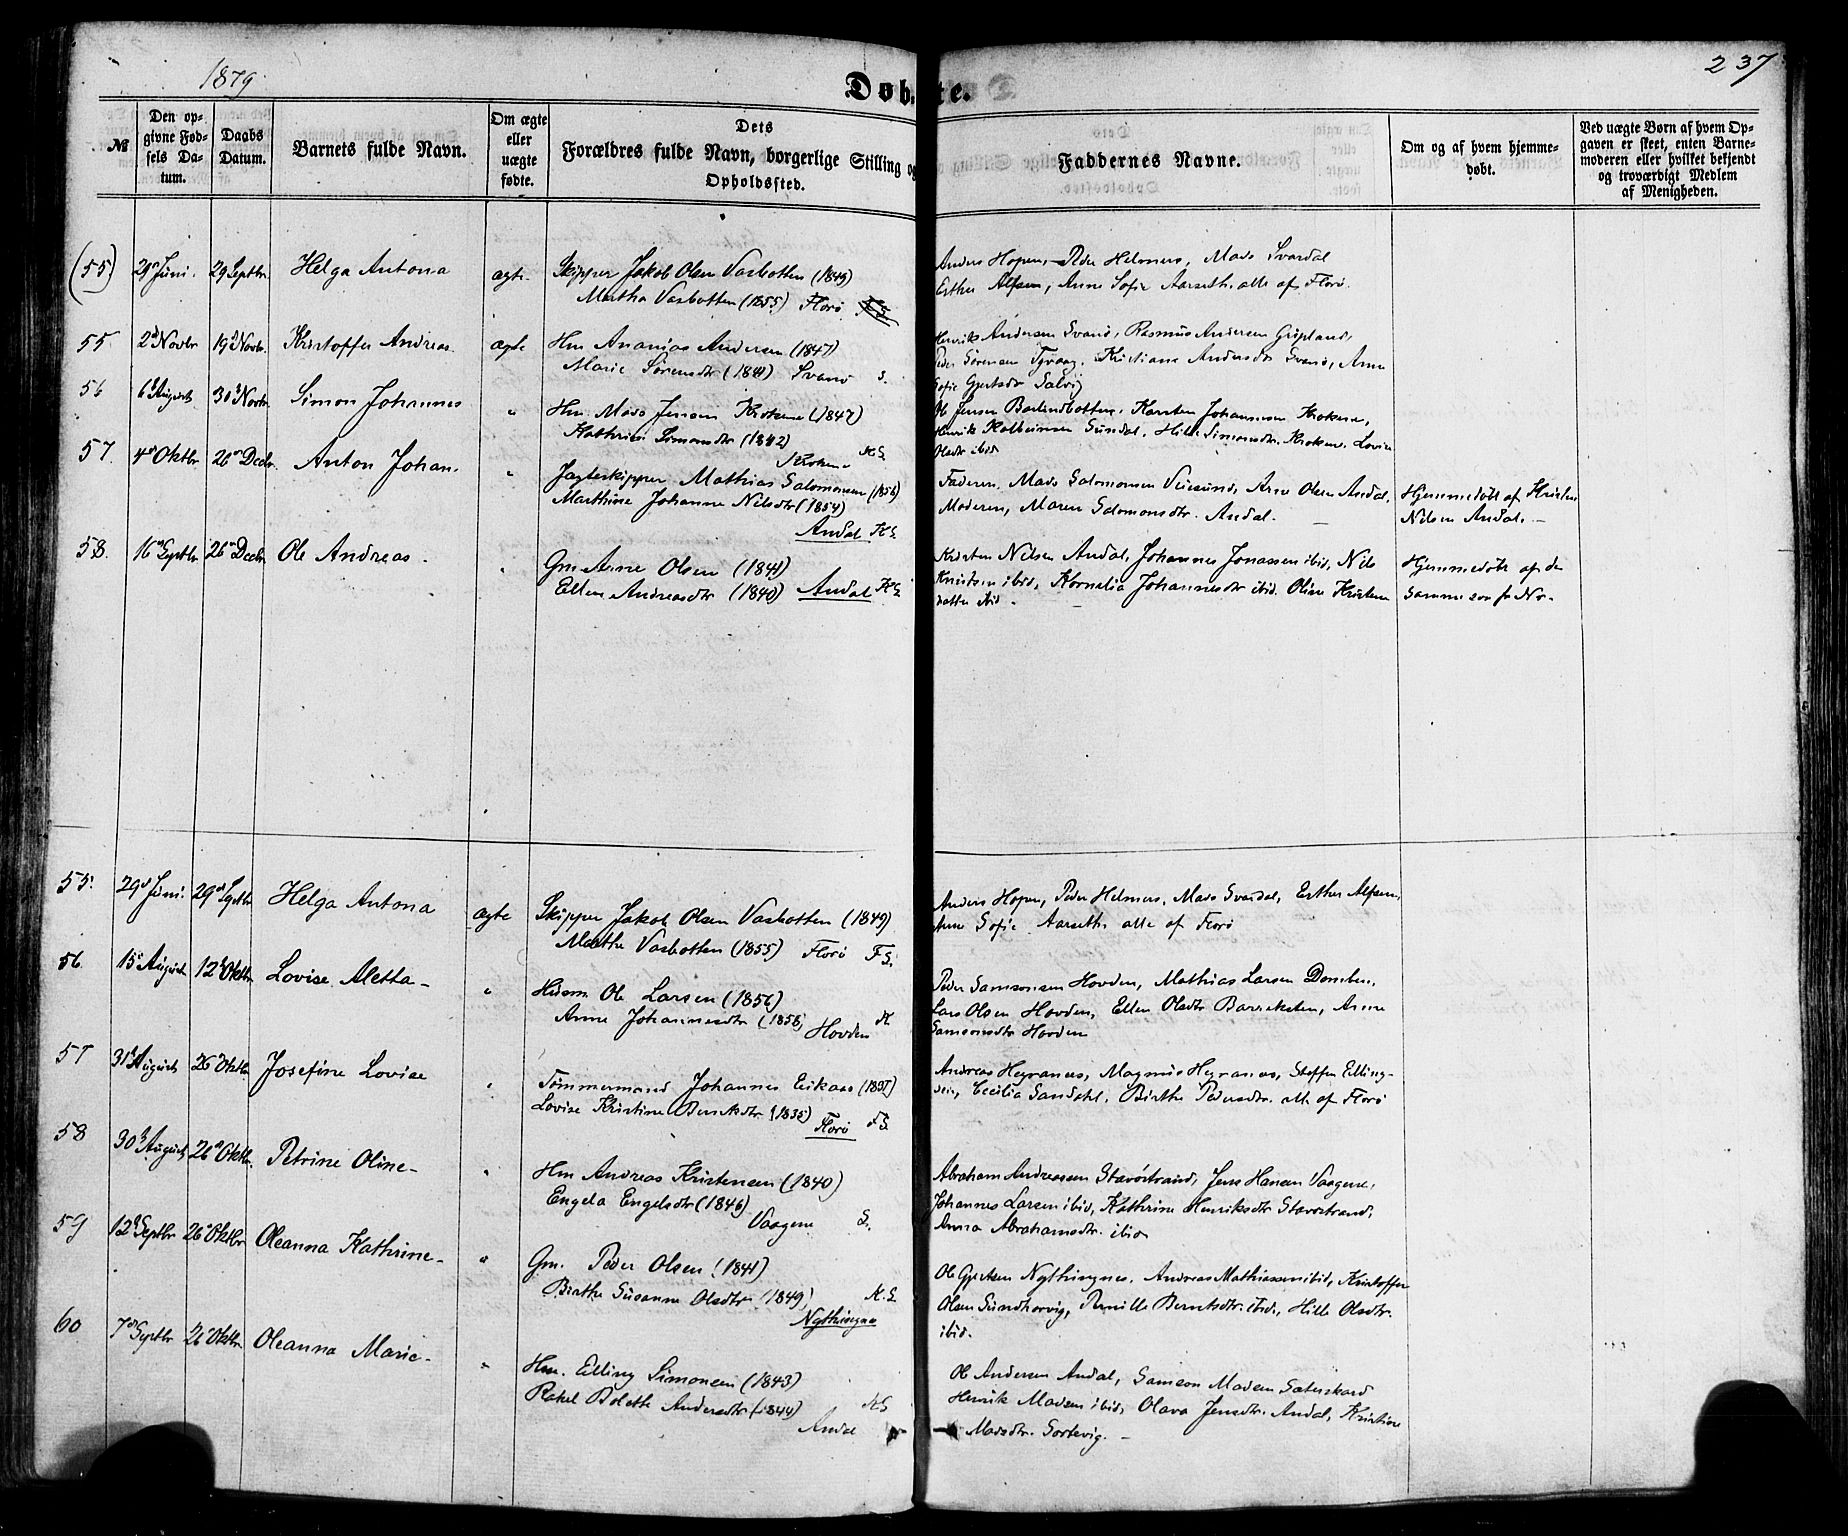 1879.
237
Døbte.
№
Den op-
givne Fød-
sels Da-
tum.
Daabs
Datum.
Barnets fulde Navn.
Om ægte
eller
uægte
fødte.
Dets
Forældres fulde Navn, borgerlige Stilling og
Opholdssted.
Faddernes Navne.
Om og af hvem hjemme-
døbt.
Ved uægte Børn af hvem Op-
gaven er skeet, enten Barne-
moderen eller hvilket bekjendt
og troværdigt Medlem
af Menigheden.
(55) 29 Juni. 29 Septbr. Helga Antona ægte Skipper Jakob Olsen Vasbotten (1849)
Martha Vasbotten (1855) Florø
Anders Hopen, Peder Helmers, Mads Svardal
Esther Alfsen, Anne Sofie Aarseth alle af Florø.
55 2d Novbr 19d Novbr. Kristoffer Andreas ægte Hm Ananias Andersen (1847)
Marie Sørensdtr (1841) Svanø S.
Henrik Andersen Svanø, Rasmus Andersen Gripland,
Peder Sørensen, Kristiane Andersdtr Svanø, Anne
Sofie Gjertsdr Salvig
56 6d August 30d Novbr. Simon Johannes " Hm. Mads Jensen Krokene (1847)
Kathrine Simonsdtr (1842)
Krokene K S.
Ole Jensen Barlindbotten, Karsten Johannesen Krokene,
Henrik Kolbeinsen Sundal, Hille Simonsdtr. Krokene, Lovise
Olsdtr ibid
57. 4d Oktbr 26d Decbr. Anton Johan. " Jagteskipper Mathias Salomonsen (1856)
Marthine Johanne Nilsdtr (1854)
Andal K S
Faderen, Mads Salomonsen, Arne Olsen Andal,
Moderen, Maren Salomonsdtr. Andal. —
Hjemmedøbt af Kristen
Nilsen Andal. —
58. 16d Septbr 26d Decbr. Ole Andreas. " Gm Arne Olsen (1841)
Ellen Andreasdtr (1840) Andal K S.
Kristen Nilsen Andal, Johannes Jonassen ibid, Nils
Knutsen ibid, Kornelia Johannesdtr ibid. Oline Kristen
datter ibid. —
Hjemmedøbt af den
Samme som fr No -
55. 29d Juni. 29d Septbr Helga Antona ægte Skipper Jakob Olsen Vasbotten (1849)
Marthe Vasbotten (1855) Florø F S.
Anders Hopen, Peder Helmers, Mads Svardal, Esther Alfsen,
Anne Sofie Aarseth alle af Florø
56. 15d August 12d Oktbr. Lovise Aletta - " Husm. Ole Larsen (1856)
Anne Johannesdtr (1858) Hovden K
Peder Samsonsen Hovden, Mathias Larsen Domben,
Lars Olsen Hovden, Ellen Olsdtr Barreksten, Anne
Samsonsdtr Hovden
57 31d August 26d Oktbr. Josefine Lovise " Tømmermand Johannes Eikaas (1837)
Lovise Kristine Berntsdtr (1835) Florø F S
Andreas Hegranes, Magnus Hegranes, Steffen Elling-
sen, Cecilia Sandahl, Birthe Pedersdtr. alle af Florø
58 30d August 26d Oktbr. Petrine Oline - " Hm Andreas Kristensen (1840)
Engela Engelsdtr (1846)
Vaagene S.
Abraham Andreassen Stavøstrand, Jens Hansen Vaagene,
Johannes Larsen ibid, Kathrine Henriksdtr Stavøstrand,
Anna Abrahamsdtr. ibid
59 12d Septbr 26d Oktbr Oleanna Kathrine - " Gm. Peder Olsen (1841)
Birthe Susanne Olsdtr (1849) K.S
Nythingnes
Ole Gjertsen Nythingnes, Andreas Mathiassen ibid, Kristoffer
Olsen Sundhovig, Pernille Berntsdtr. ibid, Hille Olsdtr.
ibid.
60 7d Septbr 26 Oktbr. Oleanna Marie - " Hm. Elling Simonsen (1843)
Rakel Bolette Andersdtr (1844) KS
Andal
Ole Andersen Andal, Samson Madsen Sæterskard
Henrik Madsen ibid, Olava Jensdtr. Andal, Kristine
Madsdtr. Sortevig. —